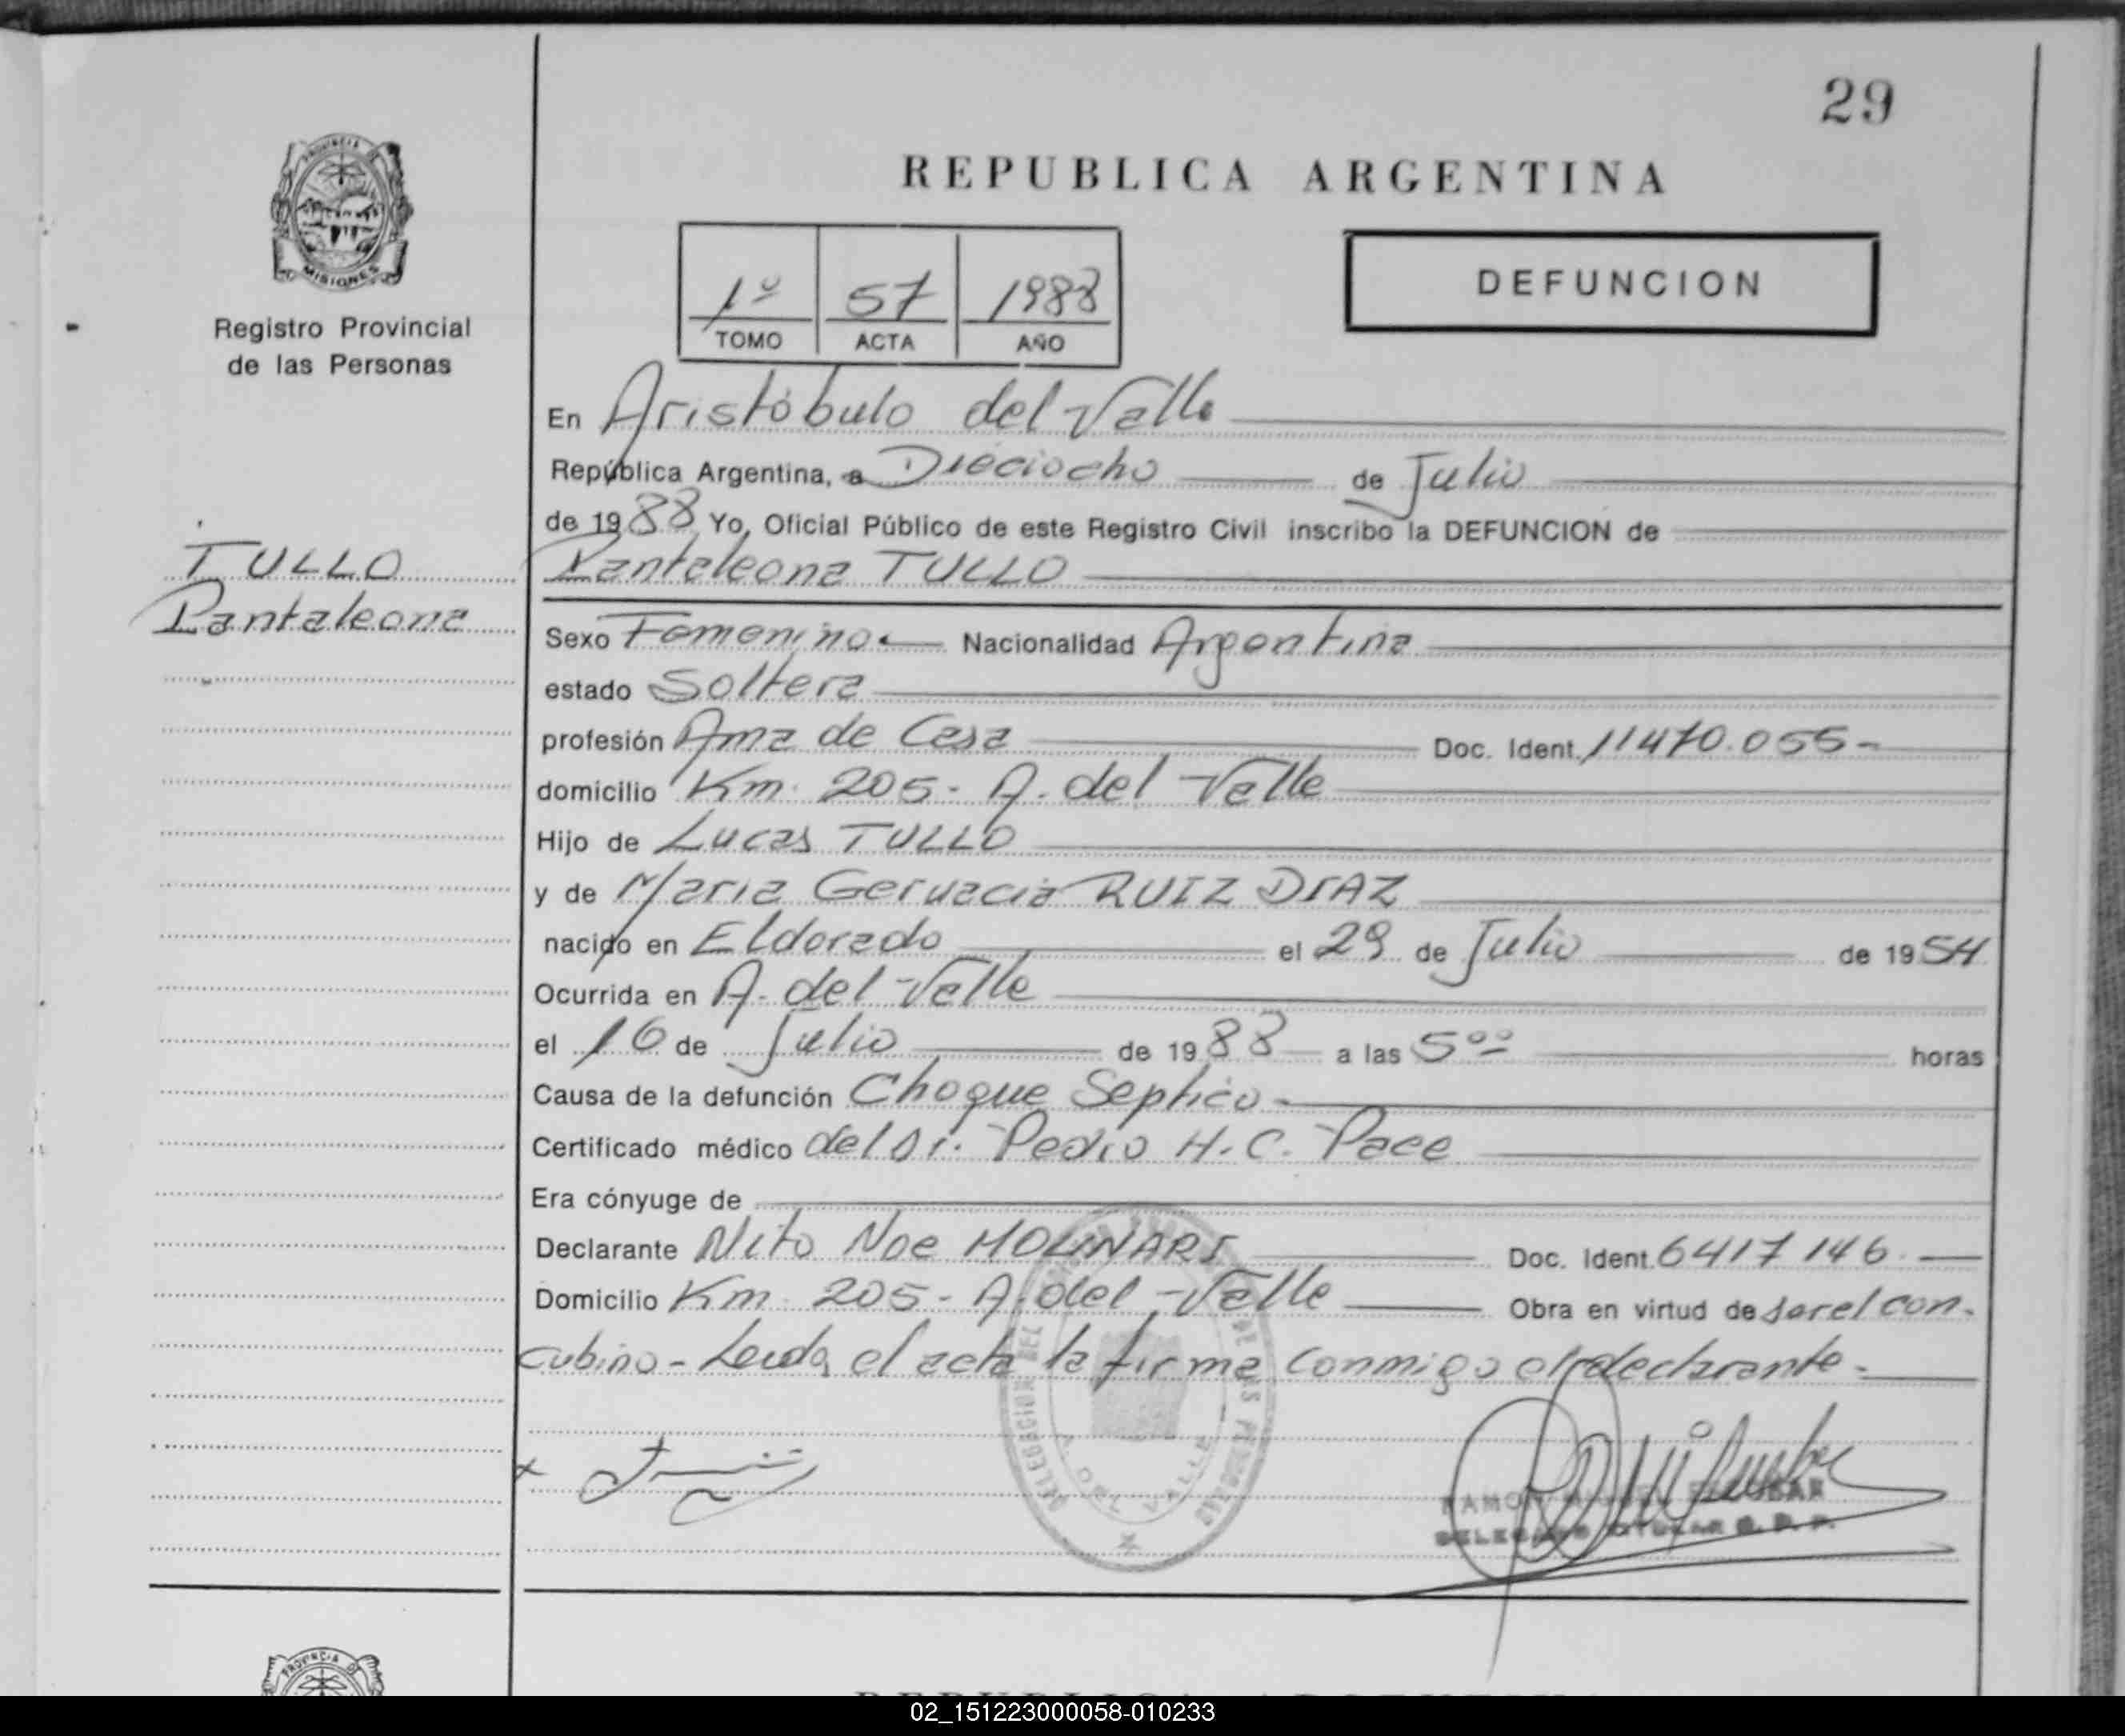 29
PROVINCIA DE
MISIONES
Registro Provincial
de las Personas
REPUBLICA ARGENTINA
1º 57 1988
TOMO ACTA AÑO
DEFUNCION
TULLO
Pantaleona
En Aristóbulo del Valle
República Argentina, a Dieciocho de Julio
de 1988 Yo, Oficial Público de este Registro Civil inscribo la DEFUNCION de
Pantaleona TULLO
Sexo Femenino Nacionalidad Argentina
estado Soltera
profesión Ama de Casa Doc. Ident. 11470.055-
domicilio Km. 205- A. del Valle
Hijo de Lucas TULLO
y de Maria Gervacia RUIZ DIAZ
nacido en Eldorado el 29 de Julio de 1954
Ocurrida en A. del Valle
el 16 de Julio de 1988 a las 5ºº horas
Causa de la defunción Choque Septico-
Certificado médico del Dr. Pedro H. C. Pace
Era cónyuge de
Declarante Noe MOLINARI Doc. Ident. 6417146.
Domicilio Km. 205- A. del Valle Obra en virtud de ser el con-
cubino- Leida el acta la firma conmigo el declarante-
DELEGACION DEL
DE LAS PERSONAS
A. DEL VALLE
RAMON MIGUEL
DELEGADO TITULAR R. P. P.
PROVINCIA DE
REPUBLICA ARGENTINA
02_151223000058-010233